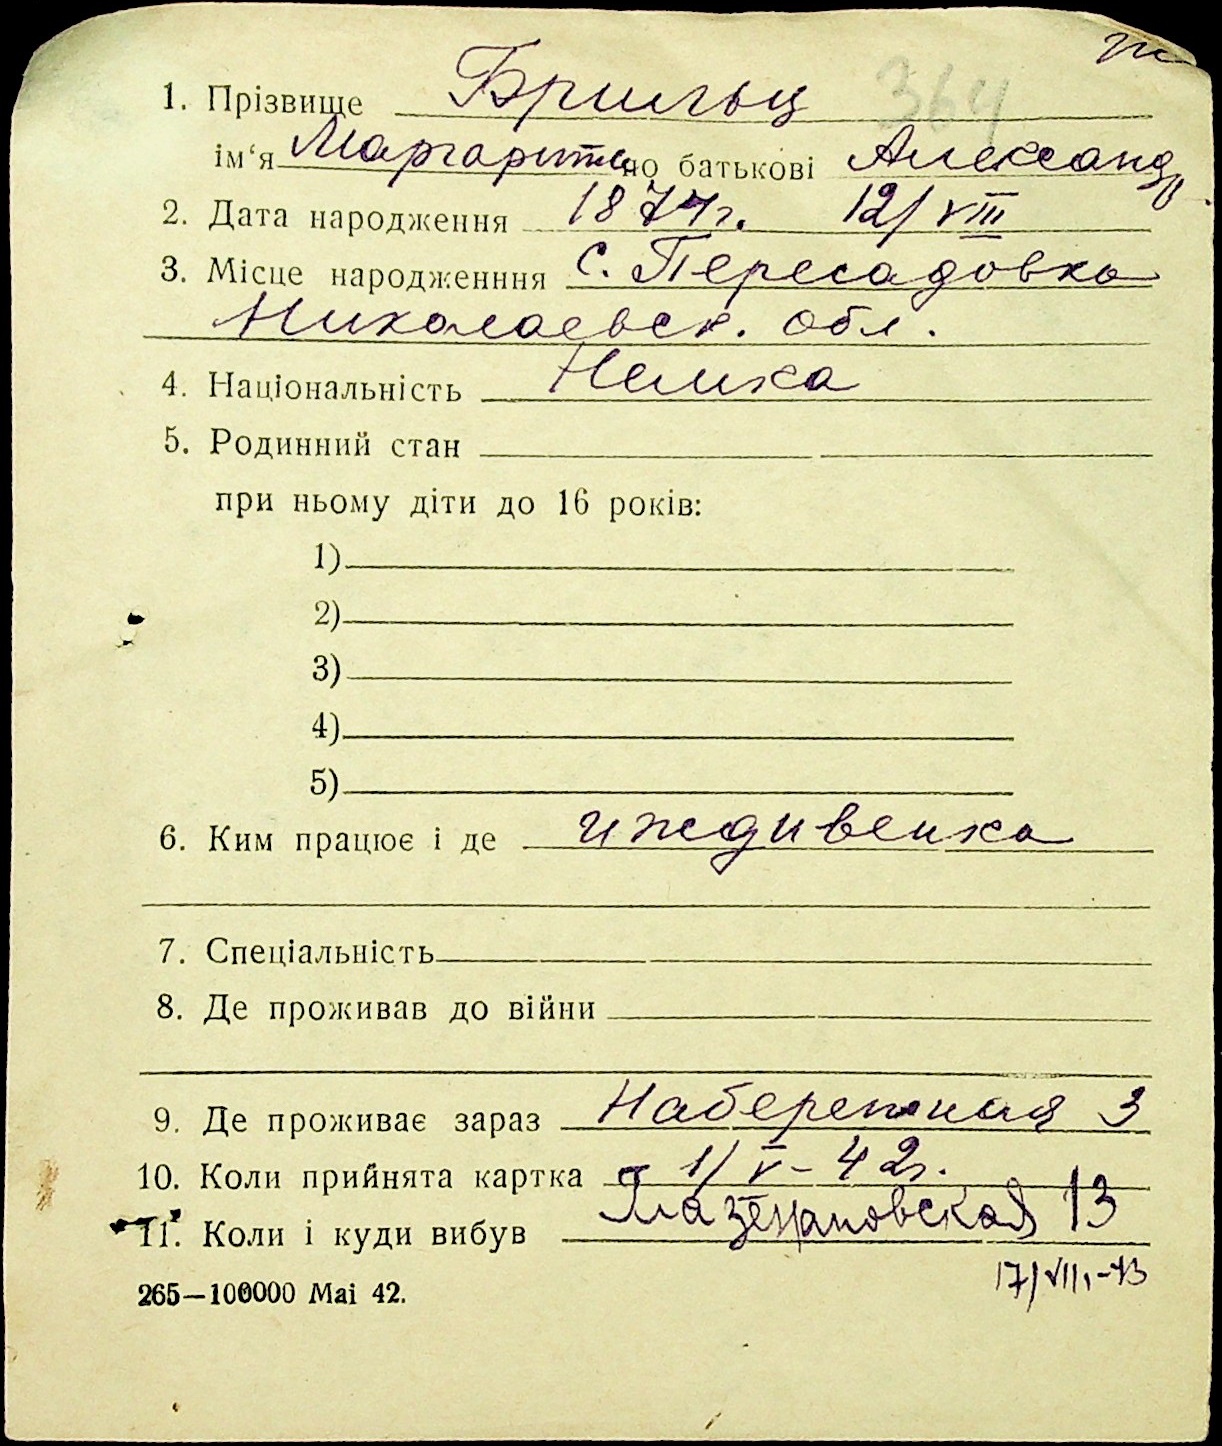 364
1. Прізвище Брильц
ім‘я Маргарита по батькові Александр.
2. Дата народження 1874г. 12/VIII
3. Місце народженння с. Пересадовка
Николаевск. обл.
4. Національність Немка
5. Родинний стан
при ньому діти до 16 років:
1)
2)
3)
4)
5)
6. Ким працює і де иждивенка
7. Спеціальність
8. Де проживав до війни
9. Де проживає зараз Набережная 3
10. Коли прийнята картка 1/V-42г.
11. Коли і куди вибув 13
17/VIII-43
265—100000 Маі 42.